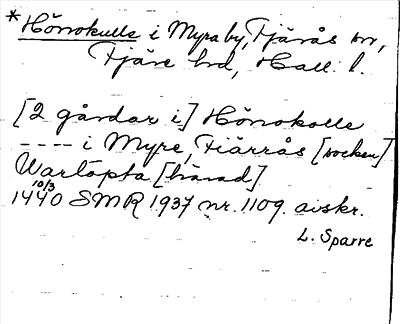 *Hönokulle i Myra by, Fjärås sn,
Fjäre hd, Hall. l.
[2 gårdar i] Hönokolle
---- i Myre, Fiärrås [socken]
Wartöpta [härad]
1440 10/3 SMR 1937 nr. 1109. avskr.
L. Sparre